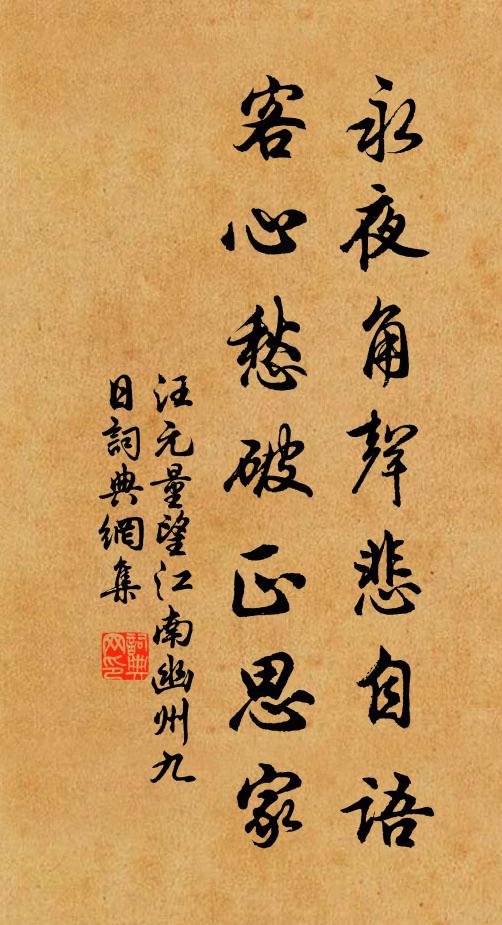 永夜角聲悲自語
客心愁破正思家
汪元量望江南幽州九
日詞典網集
詞典
網印